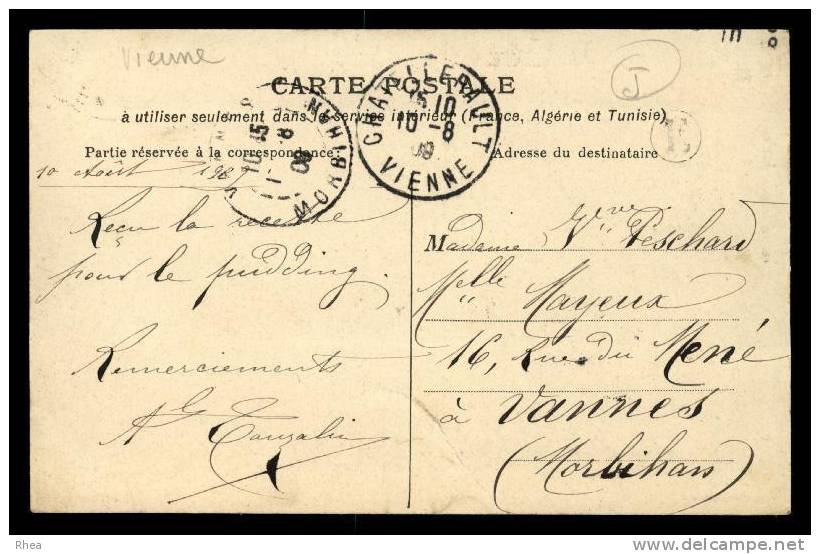 Vienne
J
CARTE POSTALE
à utiliser seulement dans le service intérieur (France, Algérie et Tunisie)
Partie réservée à la correspondance
Adresse du destinataire
CHATELLERAULT
15 10
10 -8
09
VIENNE
10 15
MORBIHAN
10 Août
Reçu la recette
pour le pudding.
Remerciements
Madame Vve Peschard
Melle Mayeux
16, Rue du Mené
à Vannes
(Morbihan)
Rhea
www.delcampe.net